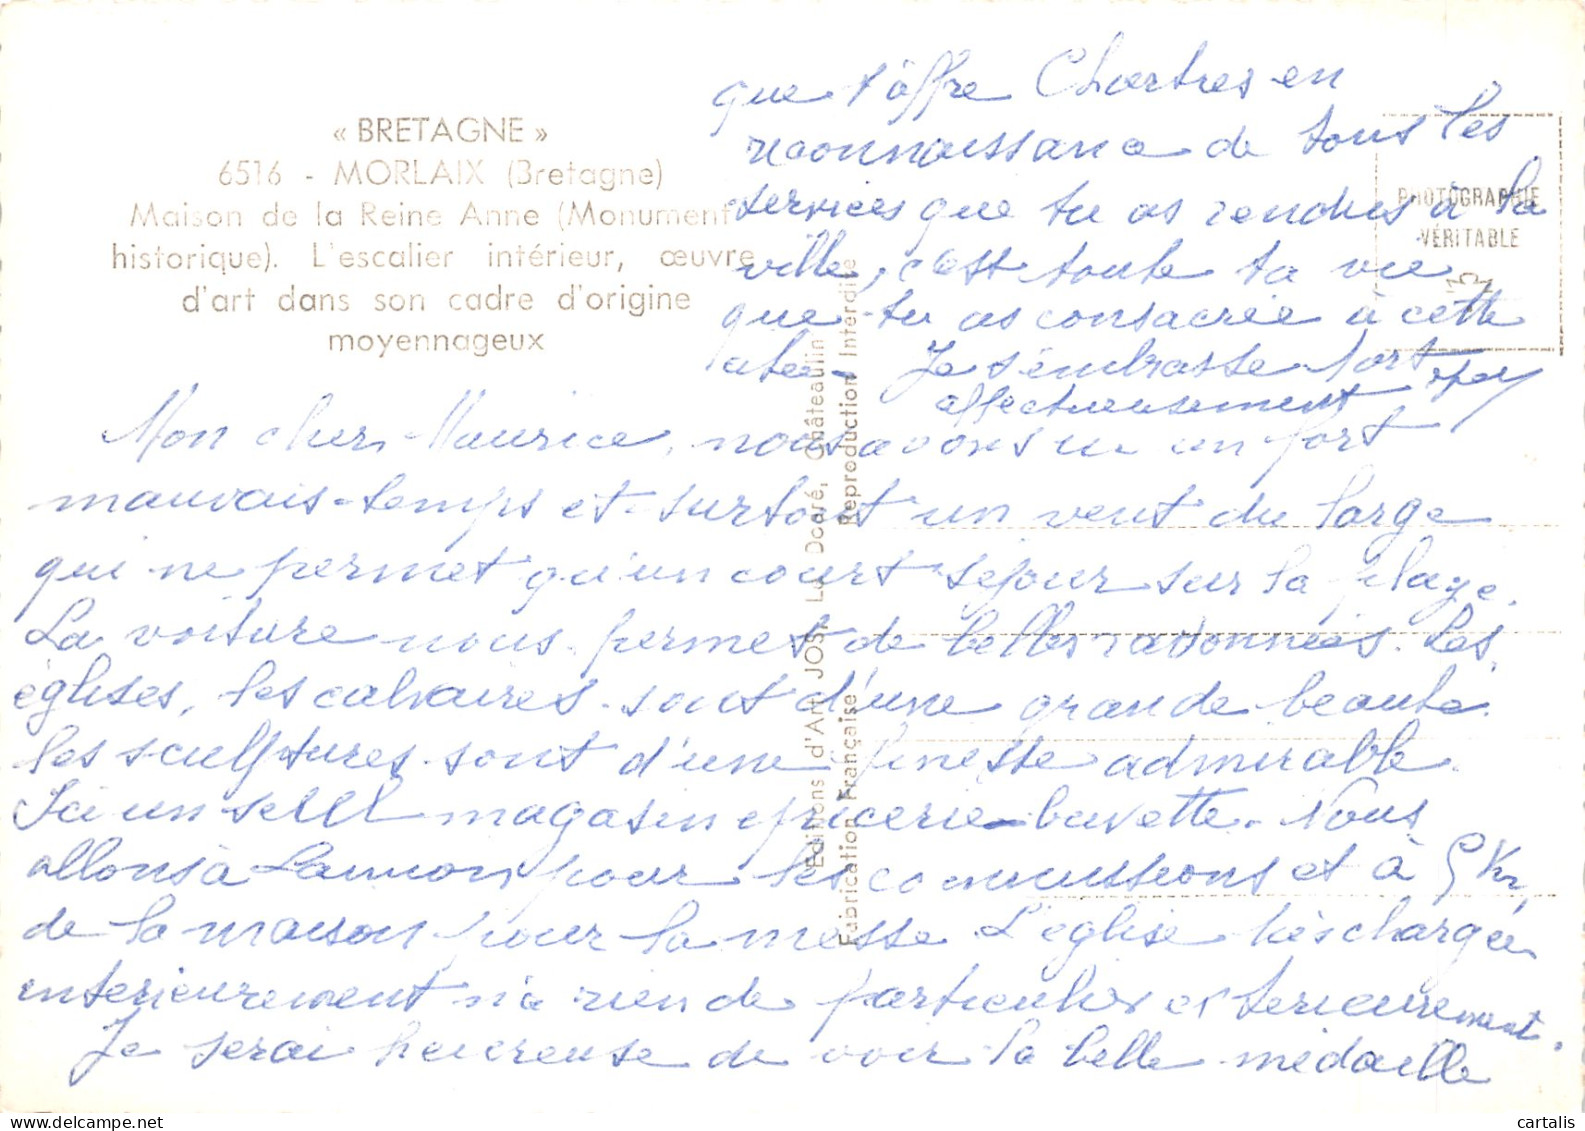 « BRETAGNE »
6516 - MORLAIX (Bretagne)
Maison de la Reine Anne (Monument
historique). L'escalier intérieur, œuvre
d'art dans son cadre d'origine
moyennageux
PHOTOGRAPHIE
VÉRITABLE
Editions d'Art JOS Le Doaré, Châteaulin
Reproduction Interdite
Fabrication Française
Mon cher Maurice, nous avons eu un fort
mauvais temps et surtout un vent du large
qui ne permet qu'un court séjour sur la plage.
La voiture nous permet de belles randonnées. Les
églises, les calvaires sont d'une grande beauté.
les sculptures sont d'une finesse admirable.
Ici un seul magasin epicerie-buvette. Nous
allons à Lannion pour les commissions et à 5 Km
de la maison pour la messe L'église très chargée
interieurement n'a rien de particulier exterieurement.
Je serai heureuse de voir la belle médaille
que t'offre Chartres en
reconnaissance de tous les
services que tu as rendus à la
ville, c'est toute ta vie
que tu as consacrée à cette
Je t'embrasse fort
affectueusement
cartalis